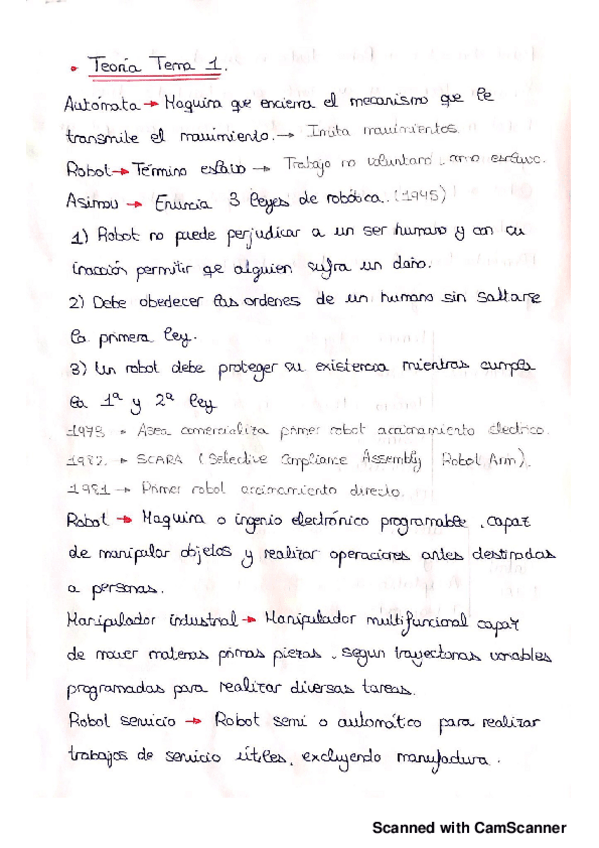 • Teoría Tema 1.
Autómata → Maquina que encierra el mecanismo que le
transmite el movimiento. → Imita movimientos.
Robot → Término eslavo → Trabajo no voluntario, como esclavo.
Asimov → Enuncia 3 leyes de robótica. (1945)
1) Robot no puede perjudicar a un ser humano y con su
inacción permitir qe alguien sufra un daño.
2) Debe obedecer las ordenes de un humano sin saltarse
la primera ley.
3) Un robot debe proteger su existencia mientras cumpla
la 1ª y 2ª ley
1973 → Asea comercializa primer robot accionamiento electrico.
1982 → SCARA (Selective Compliance Assembly Robot Arm).
1981 → Primer robot accionamiento directo.
Robot → Maquina o ingenio electrónico programable, capaz
de manipular objetos y realizar operaciones antes destinadas
a personas.
Manipulador industrial → Manipulador multifuncional capaz
de mover materias primas piezas, segun trayectorias variables
programadas para realizar diversas tareas.
Robot servicio → Robot semi o automático para realizar
trabajos de servicio útiles, excluyendo manufactura.
Scanned with CamScanner